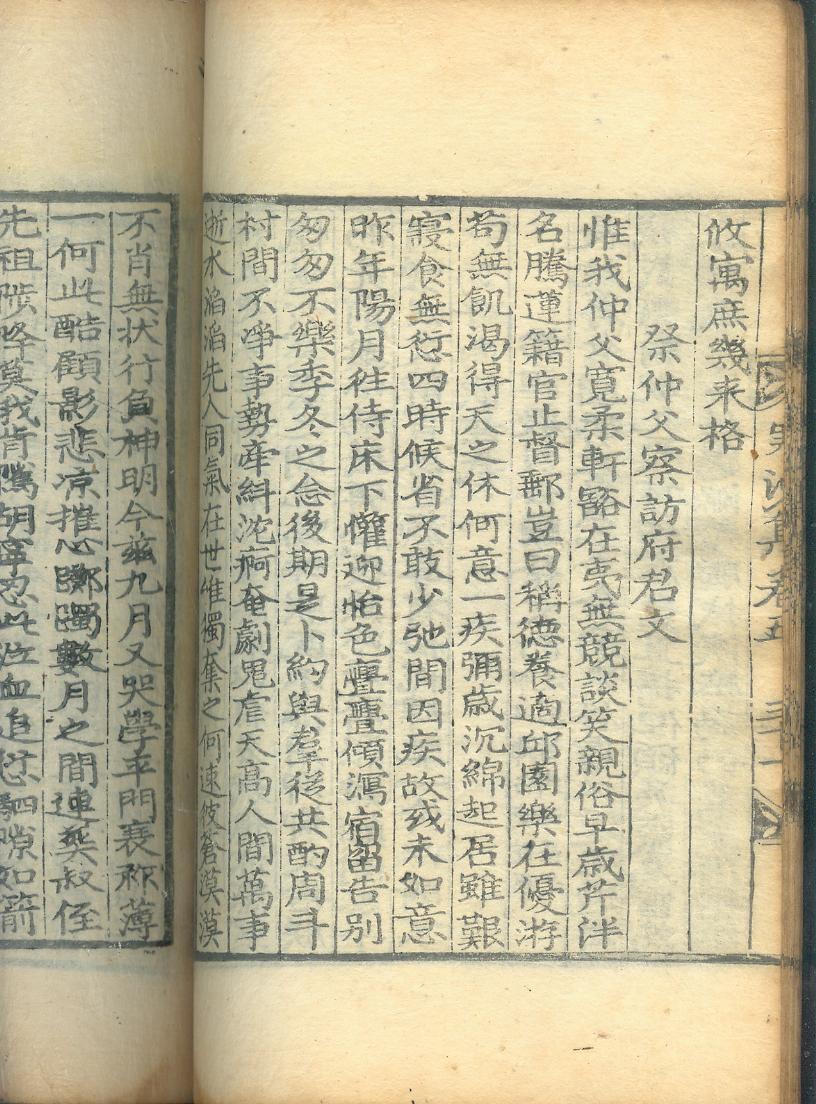 攸寓庶幾来格
祭仲父察訪府君文
惟我仲父寬柔軒豁在夷無競談笑親俗早歲芹泮
名騰蓮籍官止督郵豈曰稱德養適邱園樂在優游
苟無飢渴得天之休何意一疾彌歲沉綿起居雖艱
寢食無愆四時候省不敢少弛間因疾故或未如意
昨年陽月往侍床下懽迎怡色亹亹傾瀉宿留告别
匆匆不樂季冬之念後期是卜約與羣從共酌周斗
村間不凈事勢牽糾沈痾奄劇鬼虐天高人間萬事
逝水滔滔先人同氣在世維獨奪之何速彼蒼漠漠
不肖無状行負神明今玆九月又哭學平門衰祚薄
一何此酷顧影悲凉摧心躑躅數月之間連葬叔侄
先祖陟降莫我肯騭胡寧忍此泣血追愆駟隙如箭
集卷五
三十一